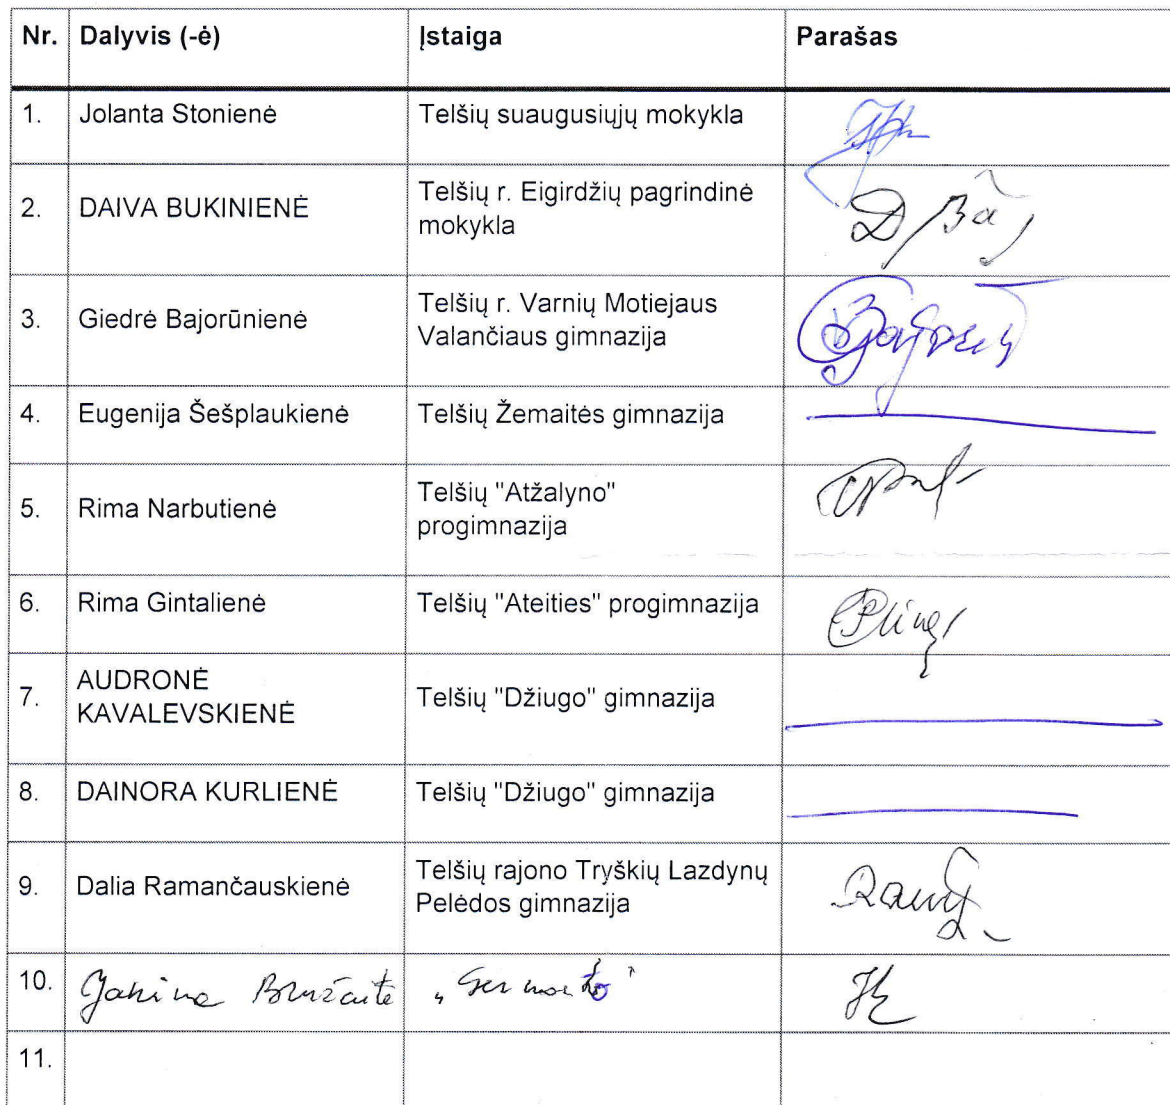 Nr. Dalyvis (-ė) Įstaiga Parašas
1. Jolanta Stonienė Telšių suaugusiųjų mokykla
2. DAIVA BUKINIENĖ Telšių r. Eigirdžių pagrindinė
mokykla
3. Giedrė Bajorūnienė Telšių r. Varnių Motiejaus
Valančiaus gimnazija
4. Eugenija Šešplaukienė Telšių Žemaitės gimnazija
5. Rima Narbutienė Telšių "Atžalyno"
progimnazija
6. Rima Gintalienė Telšių "Ateities" progimnazija
7. AUDRONĖ
KAVALEVSKIENĖ Telšių "Džiugo" gimnazija
8. DAINORA KURLIENĖ Telšių "Džiugo" gimnazija
9. Dalia Ramančauskienė Telšių rajono Tryškių Lazdynų
Pelėdos gimnazija
10. Janina
11.